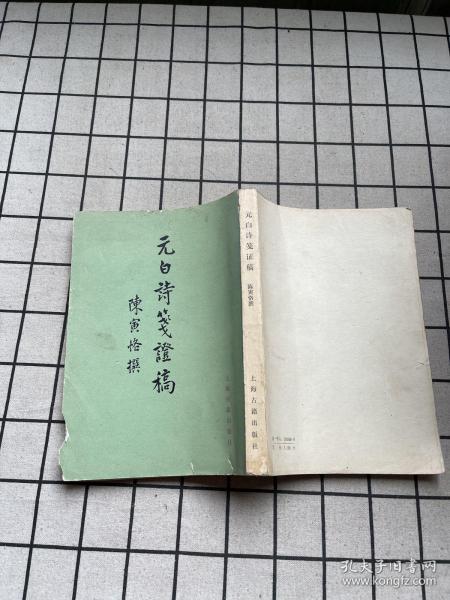 元白詩箋證稿
陳寅恪撰
上海古籍出版社
元白诗笺证稿
陈寅恪撰
上海古籍出版社
孔夫子旧书网
www.kongfz.com